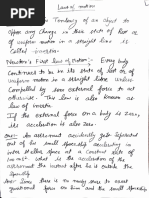 Laws of motion
Tendency of an object to
oppose any change in their state of Rest or
of uniform motion in a straight line is
Called inertia.
Newton's First law of motion:- Every body
Continues to be in its state of rest or of
uniform motion in a straight line unless
Compelled by some external force to act
otherwise. This law is also known as law
of inertia.
If the external force on a body is zero,
its acceleration is also zero.
Que:- An astronaut accidently gets seperated
out of his small spaceship accelerating in
inter stellar space at a constant rate of
What is the acceleration of the
astronaut the instant after he is outside the
spaceship
Sol:- Since there is no nearby stars to exert
gravitational force on him and the small spaceship